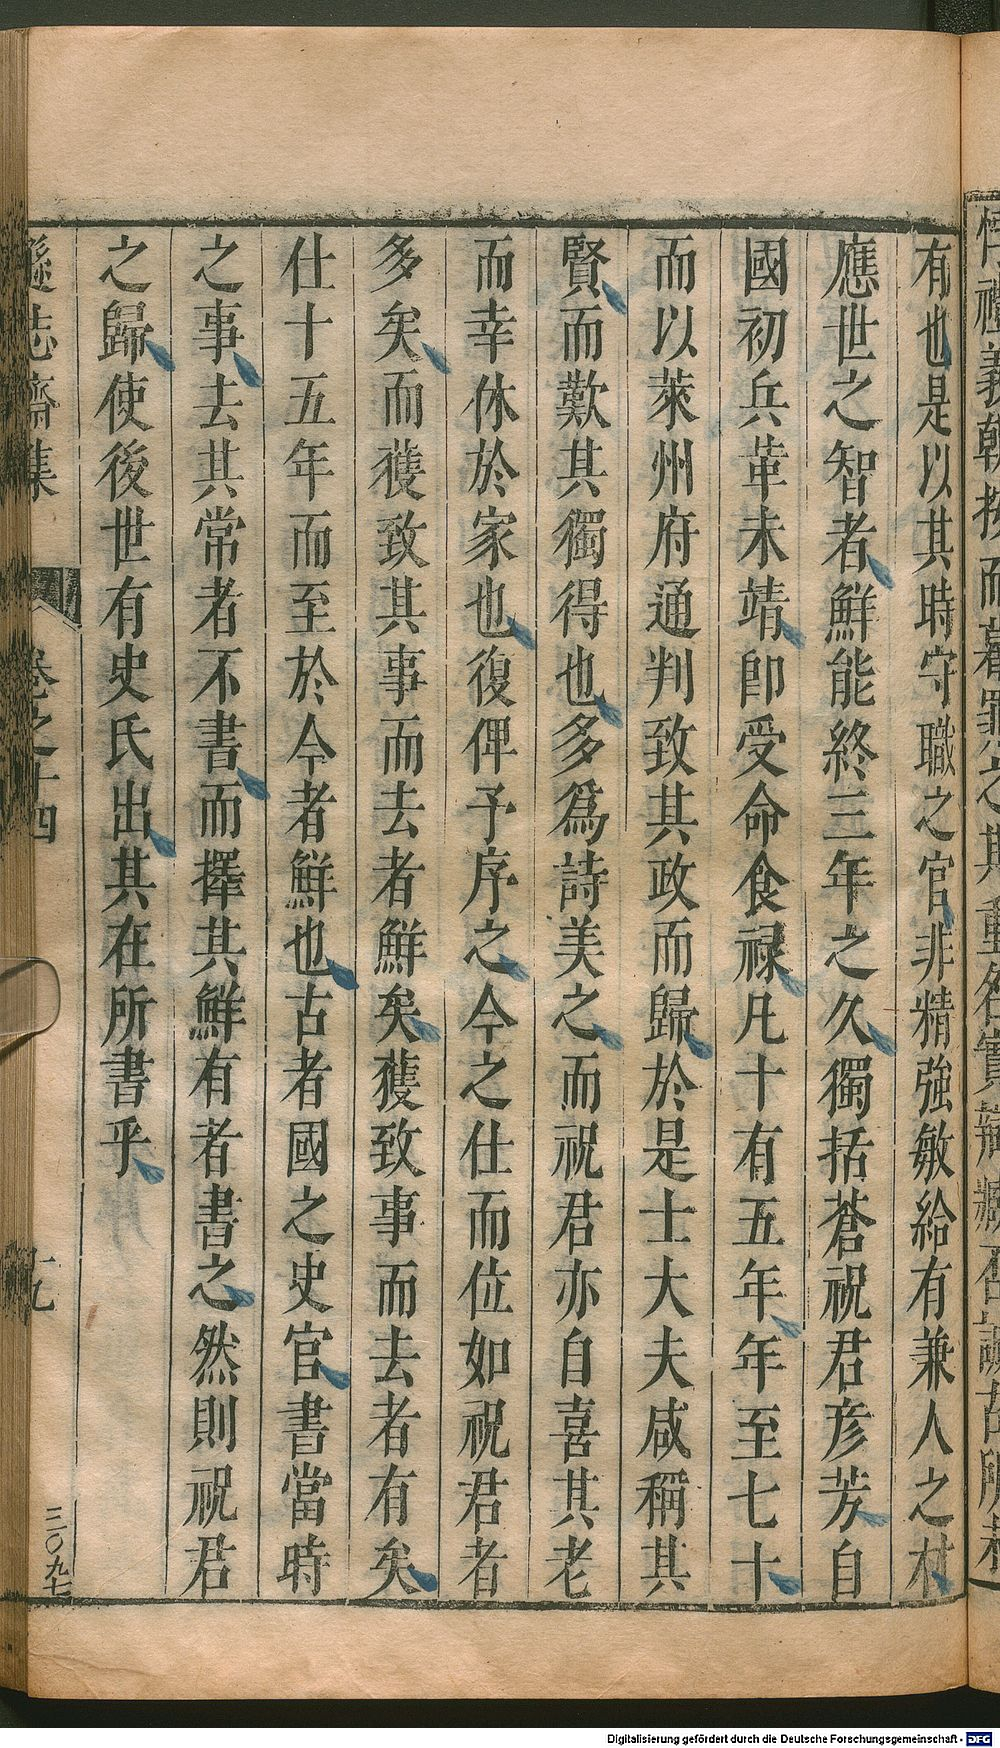 有也是以其時守職之官非精強敏給有兼人之材
應世之智者鮮能終三年之久獨括蒼祝君彦芳自
國初兵革未靖卽受命食祿凡十有五年年至七十
而以萊州府通判致其政而歸於是士大夫咸稱其
賢而歎其獨得也多爲詩美之而祝君亦自喜其老
而幸休於家也復俾予序之今之仕而位如祝君者
多矣而獲致其事而去者鮮矣獲致事而去者有矣
仕十五年而至於今者鮮也古者國之史官書當時
之事去其常者不書而擇其鮮有者書之然則祝君
之歸使後世有史氏出其在所書乎
遜志齋集 卷之十四 九
三一〇九七
Digitalisierung gefördert durch die Deutsche Forschungsgemeinschaft - DFG